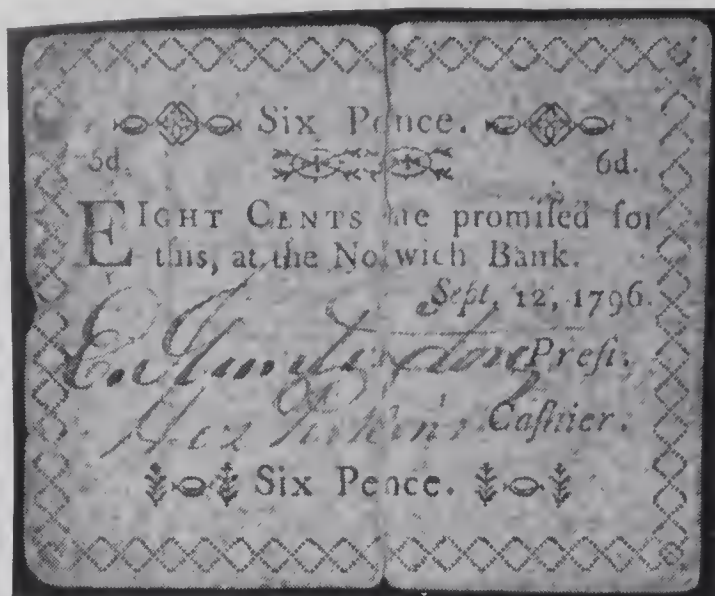 Six Pence.
6d. 6d.
EIGHT CENTS are promiſed for
this, at the Norwich Bank.
Sept. 12, 1796.
E. Huntington Preſi.
Perkins Caſhier.
Six Pence.